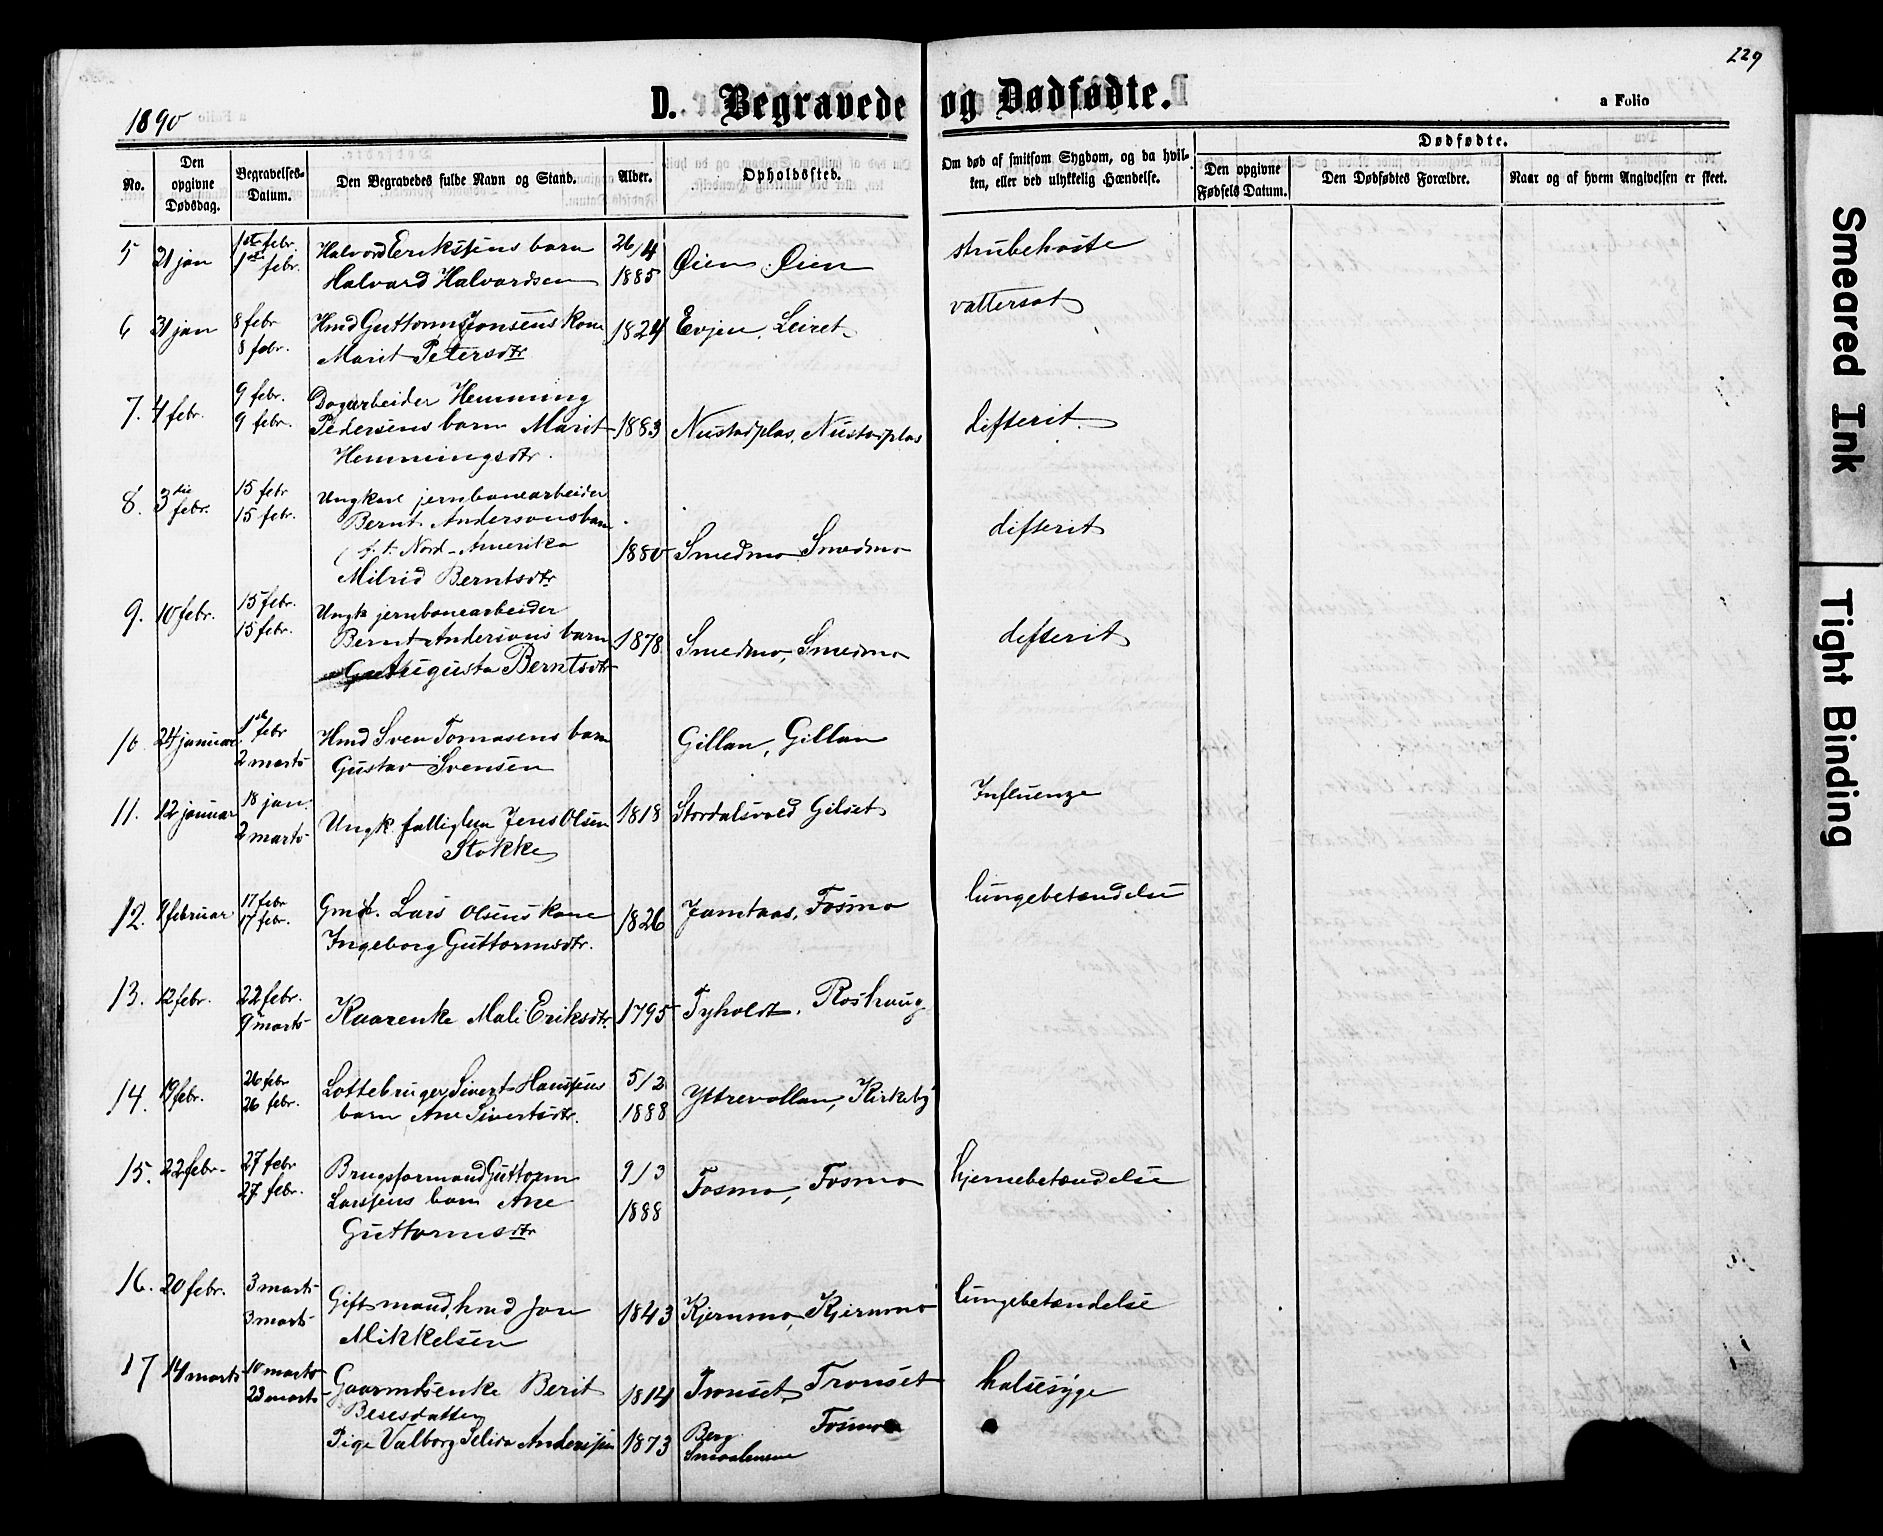 229
1890
D. Begravede og Dødfødte.
a Folio
No.
Den opgivne Dødsdag.
Begravelses-Datum.
Den Begravedes fulde Navn og Stand.
Alder.
Opholdssted.
Om død af smitsom Sygdom, og da hvilken, eller ved ulykkelig Hændelse.
Dødfødte.
Den opgivne Fødsels Datum.
Den Dødfødtes Forældre.
Naar og af hvem Angivelsen er skeet.
5 31 jan 1ste febr. Halvard Erikssens barn 26/4 strubehoste
1ste febr. Halvard Halvardsen 1885 Øien, Øien
6 31 jan 8 febr Hmd Guttorm Jonsens kone 1824 Evjen, Leiret vattersot
8 febr. Marit Petersdtr
7. 4 febr. 9 febr. Dagarbeider Hemming
9 febr. Pedersens barn Marit 1883 Nustadplas, Nustadplas difterit
Hemmingsdtr.
8. 3die febr. 15 febr Ungkarl jernbanearbeider
15 febr. Bernt Andersons barn difterit
f. t. Nord-Amerika 1880 Smedmo Smedmo
Milrid Berntsdtr
9. 10 febr. 15 febr. Ungk jernbanearbeider
15 febr. Bernt Andersons barn 1878 Smedmo, Smedmo difterit
Augusta Berntsdtr
10. 24 januar 1ste febr Hmd Sven Tomasens barn Gillan, Gillan
2 marts Gustav Svensen
11. 12 januar 18 jan. Ungk. fattiglem Jens Olsen 1818 Stordalsvold Gilset Influenze
2 marts Stokke
12. 9 februar 17 febr Gmd. Lars Olsens kone 1826 Jamtaas, Fosmo lungebetændelse
17 febr. Ingeborg Guttormsdtr.
13. 12 febr. 22 febr. Kaarenke Mali Eriksdtr. 1795 Tyholdt. Roshaug
9 marts
14. 19 febr. 26 febr Lottebruger Sivert Hanssens 5/2
26 febr. barn Ane Sivertsdtr. 1888 Yttrevollan, Kirkeby
15. 22 febr. 27 febr Brugsformand Guttorm 9/3 hjernebetændelse
27 febr. Larssens barn Ane Fosmo, Fosmo
Guttormsdtr 1888
16. 20 febr. 3 marts Giftmand, hmd Jon 1843 Kjernmo, Kjernmo lungebetændelse
3 marts Mikkelsen
17 14 marts 10 marts Gaarmdsenke Berit 1814 Tronset, Tronset halsesyge
23 marts
Pige Valborg Selida Anderssen 1873 Berg Fosmo
Smaalenene
Smeared Ink
Tight Binding